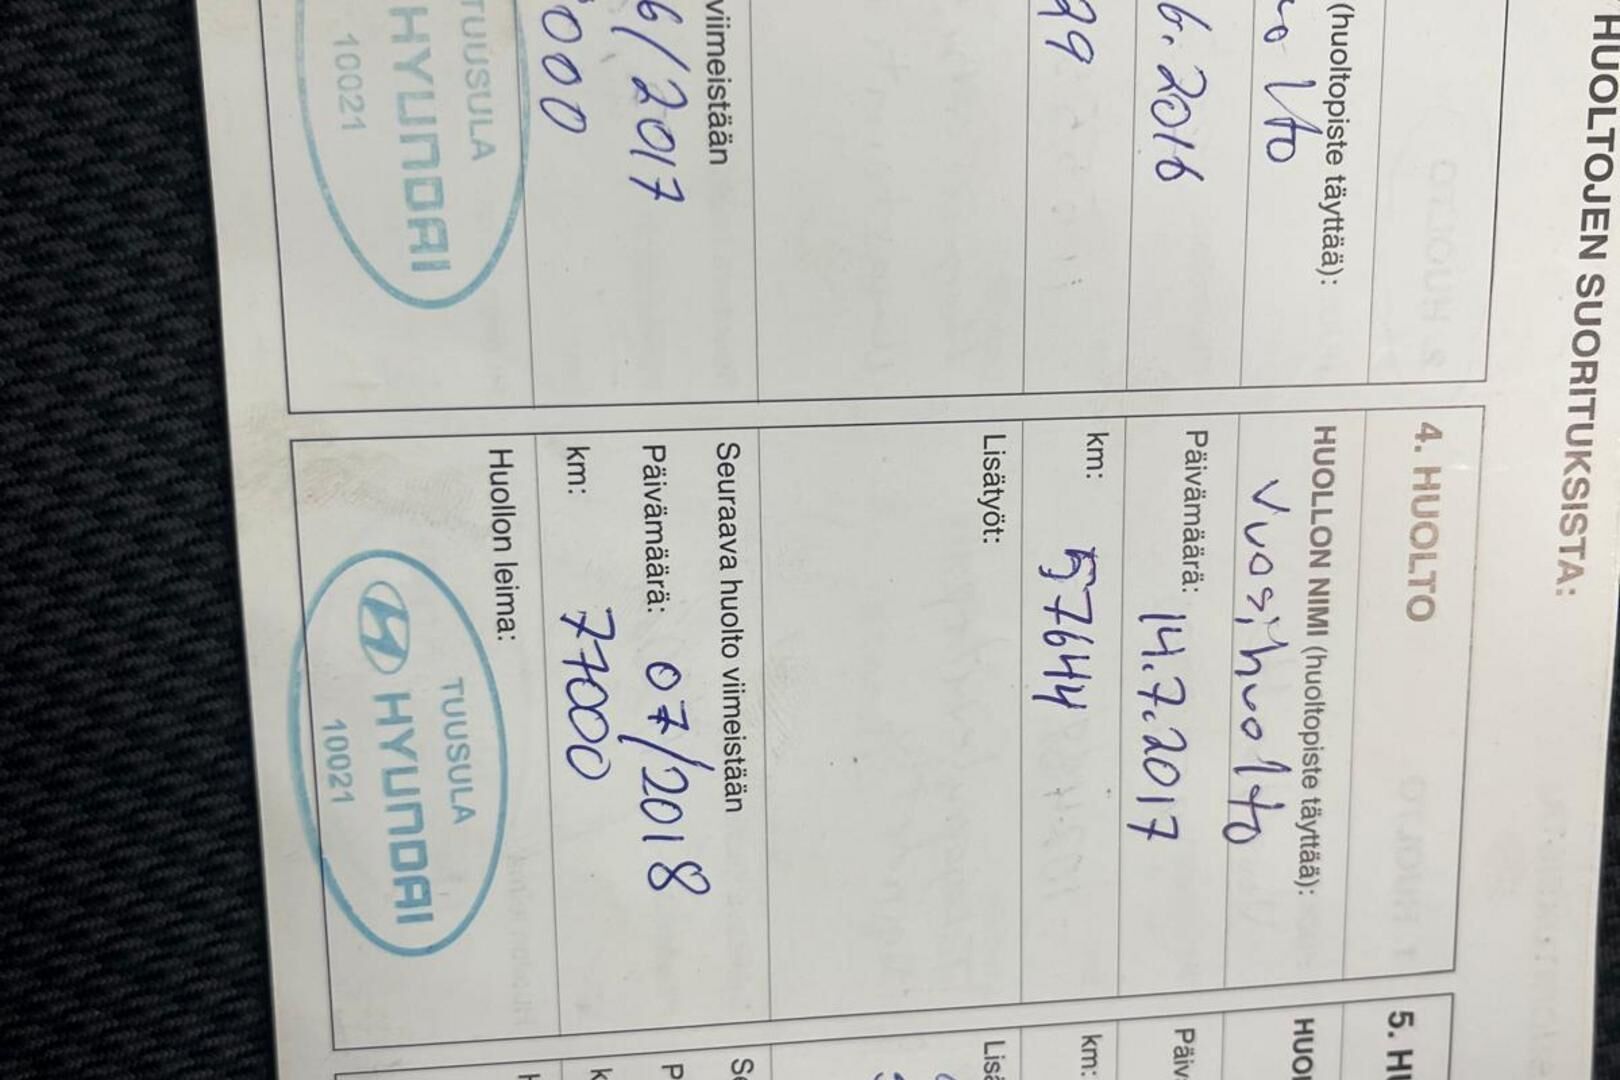 HUOLTOJEN SUORITUKSISTA:
(huoltopiste täyttää):
6.2016
99
viimeistään
6/2017
000
TUUSULA
HYUNDAI
10021
4. HUOLTO
HUOLLON NIMI (huoltopiste täyttää):
Vuosihuolto
Päivämäärä: 14.7.2017
km: 57644
Lisätyöt:
Seuraava huolto viimeistään
Päivämäärä: 07/2018
km: 77000
Huollon leima:
TUUSULA
HYUNDAI
10021
5.
km: